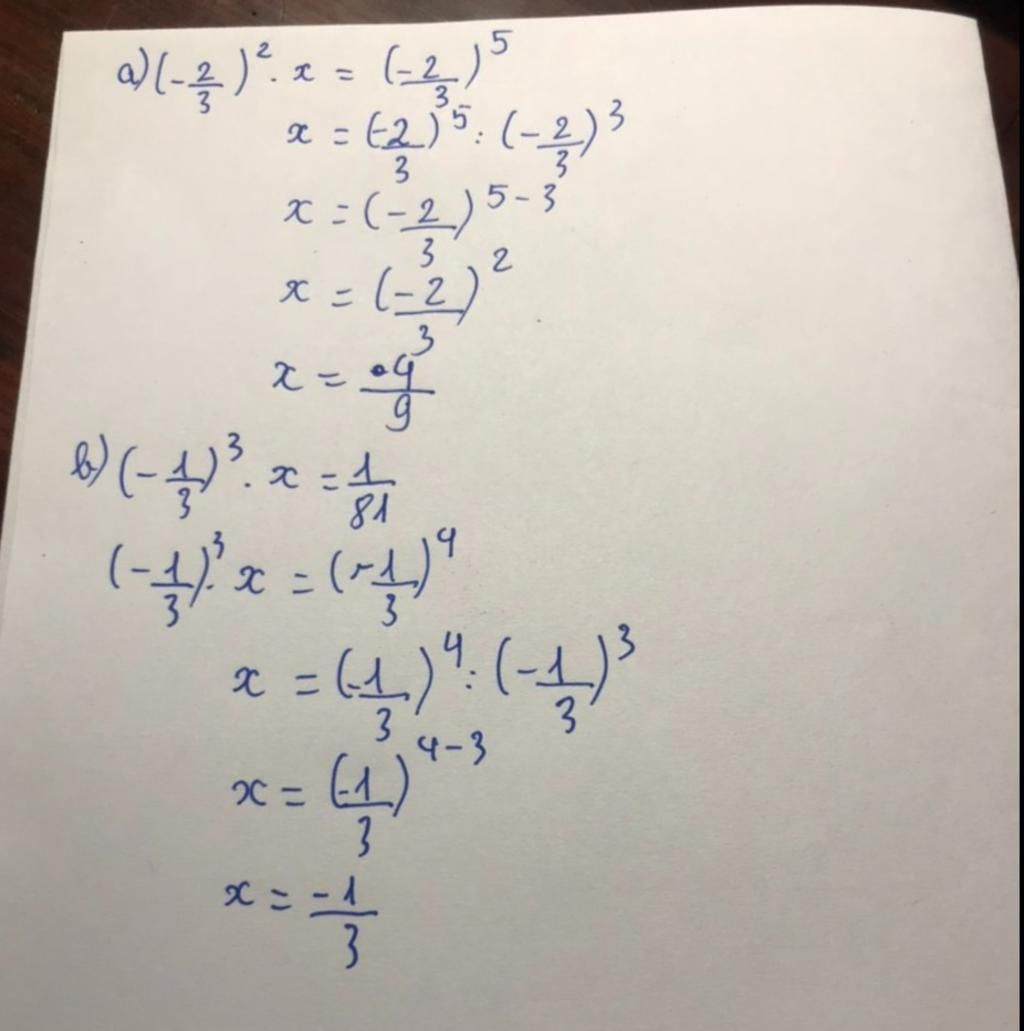 a) (-2/3)^2 . x = (-2/3)^5
x = (-2/3)^5 : (-2/3)^3
x = (-2/3)^5-3
x = (-2/3)^2
x = 4/9
b) (-1/3)^3 . x = 1/81
(-1/3)^3 . x = (-1/3)^4
x = (-1/3)^4 : (-1/3)^3
x = (-1/3)^4-3
x = -1/3